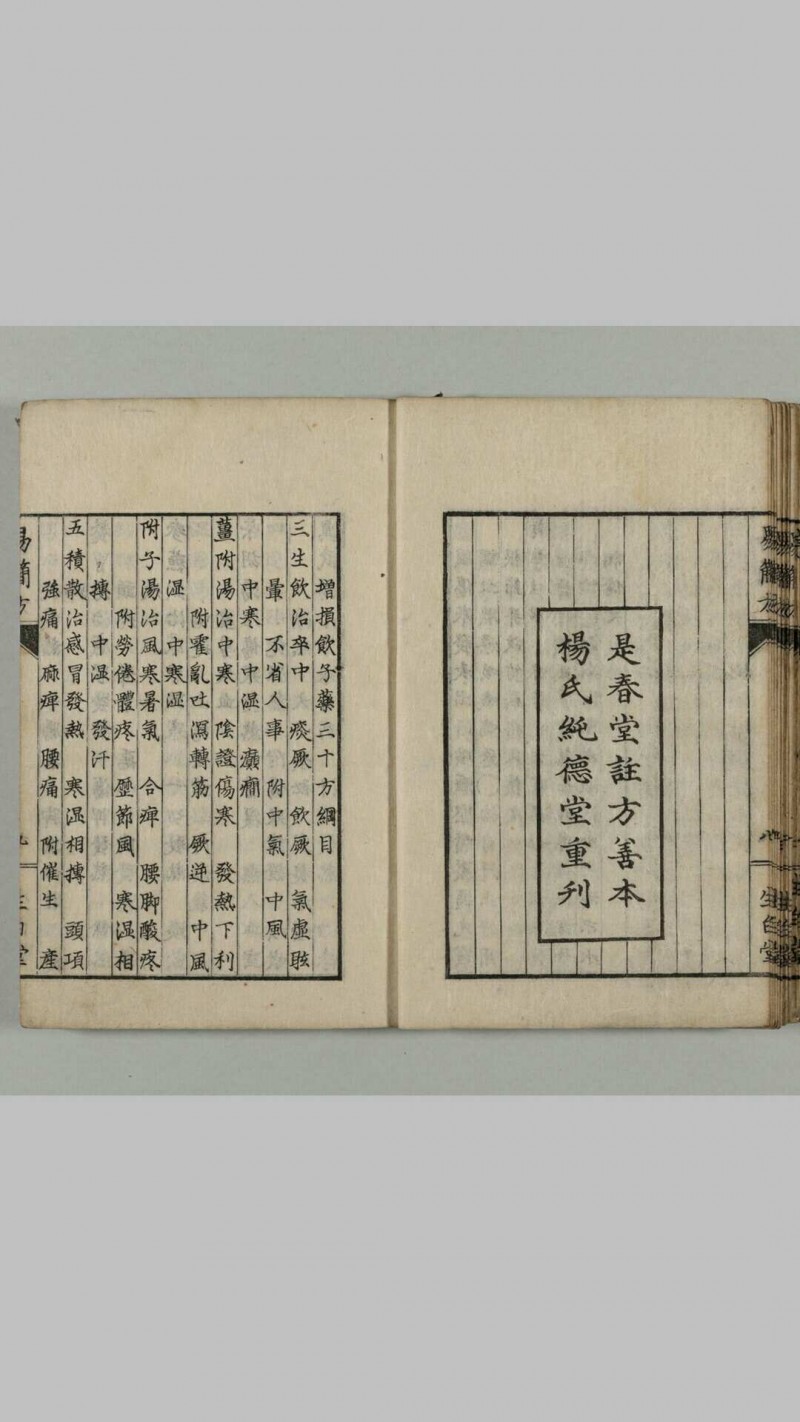 是春堂註方善本
楊氏純德堂重刋
生白堂
增損飲子藥三十方綱目
三生飲治卒中　痰厥　飲厥　氣虛眩
暈　不省人事　附中氣　中風
中寒　中湿　癲癇
薑附湯治中寒　陰證傷寒　發熱下利
附霍亂吐瀉轉筋　厥逆　中風
湿　中寒湿
附子湯治風寒暑氣　合痺　腰脚酸疼
附勞倦體疼　歷節風　寒湿相
摶　中湿　發汗
五積散治感冒發熱　寒湿相摶　頭項
強痛　麻痺　腰痛　附催生　產
易簡方